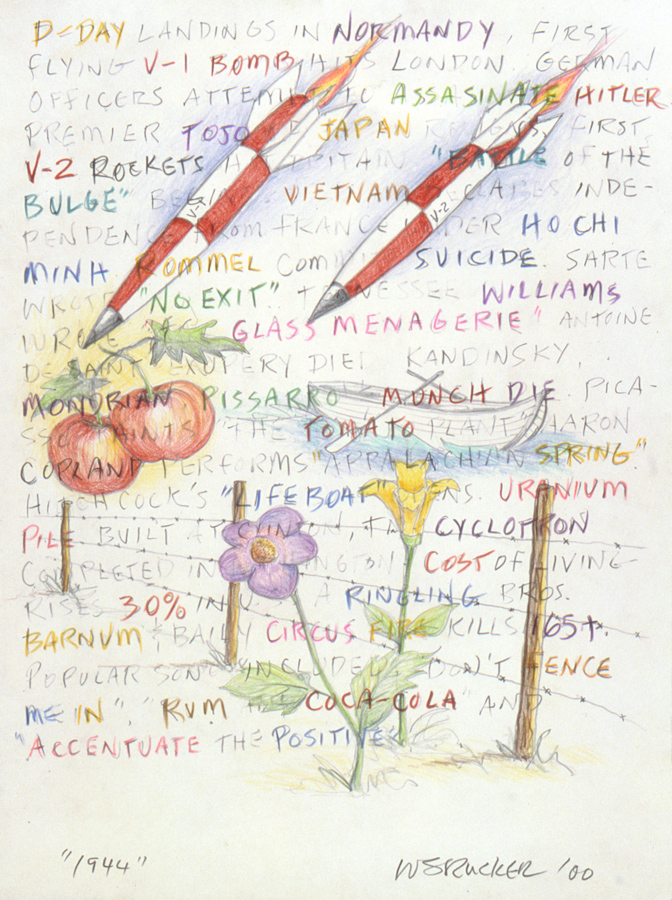 D-DAY LANDINGS IN NORMANDY, FIRST
FLYING V-1 BOMB HITS LONDON. GERMAN
OFFICERS ATTEMPT TO ASSASINATE HITLER
PREMIER TOJO OF JAPAN RESIGNS, FIRST
V-2 ROCKETS HIT BRITAIN "BATTLE OF THE
BULGE" BEGINS. VIETNAM DECLARES INDE-
PENDENCE FROM FRANCE UNDER HO CHI
MINH. ROMMEL COMMITS SUICIDE. SARTE
WROTE "NO EXIT". TENNESSEE WILLIAMS
WROTE "GLASS MENAGERIE" ANTOINE
DE SAINT EXUPERY DIES KANDINSKY,
MONDRIAN PISSARRO MUNCH DIE. PICA-
SSO PAINTS "THE TOMATO PLANT" AARON
COPLAND PERFORMS "APPALACHIAN SPRING".
HITCHCOCK'S "LIFEBOAT" OPENS. URANIUM
PILE BUILT AT CLINTON, CYCLOTRON
COMPLETED IN WASHINGTON. COST OF LIVING
RISES 30% IN U.S. A RINGLING BROS.
BARNUM & BAILY CIRCUS FIRE KILLS 165+.
POPULAR SONGS INCLUDE "DON'T FENCE
ME IN", "RUM AND COCA-COLA" AND
"ACCENTUATE THE POSITIVE"
V-2
V-2
"1944"
WSTRUCKER '00